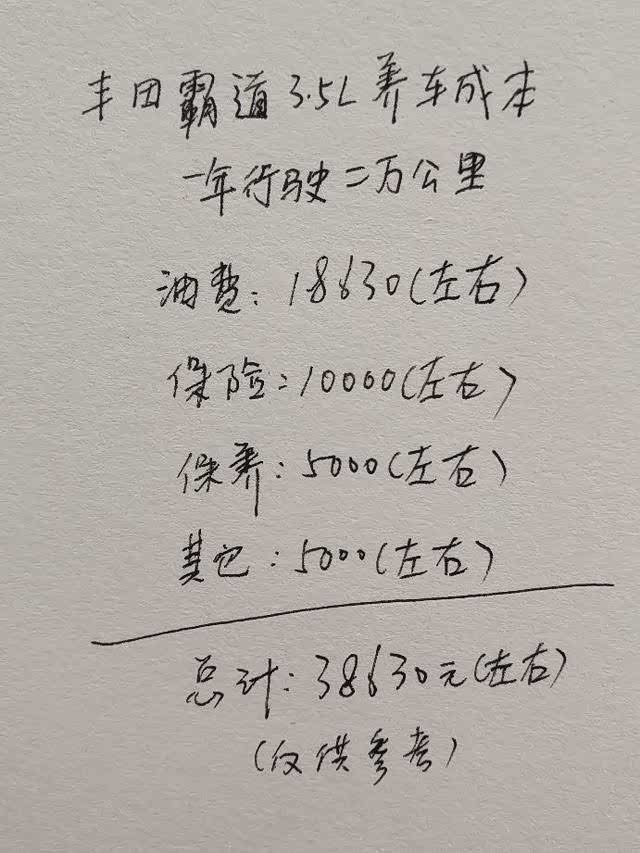 丰田霸道3.5L养车成本
一年行驶二万公里
油费：18630(左右)
保险：10000(左右)
保养：5000(左右)
其它：5000(左右)
总计：38630元(左右)
(仅供参考)